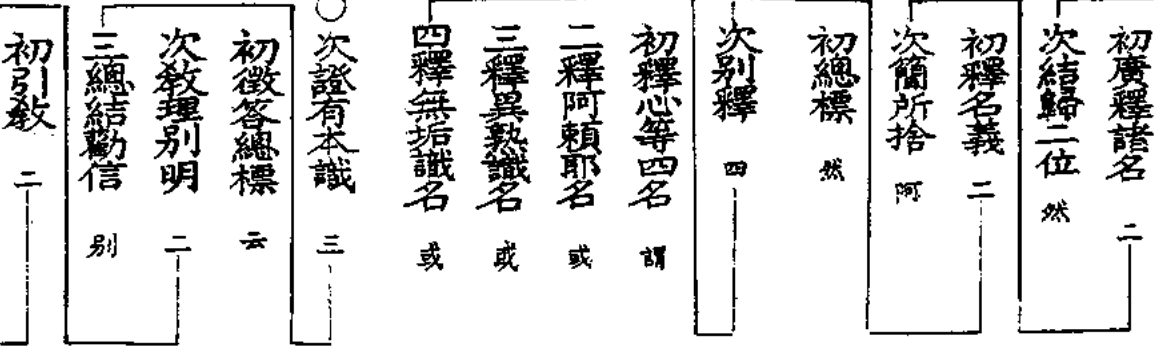 初廣釋諸名 二
次結歸二位 然
初釋名義 二
次簡所捨 阿
初總標 然
次別釋 四
初釋心等四名 謂
二釋阿頼耶名 或
三釋異熟識名 或
四釋無垢識名 或
○
次證有本識 三
初徵答總標 云
次教理別明 二
三總結勸信 別
初引教 二